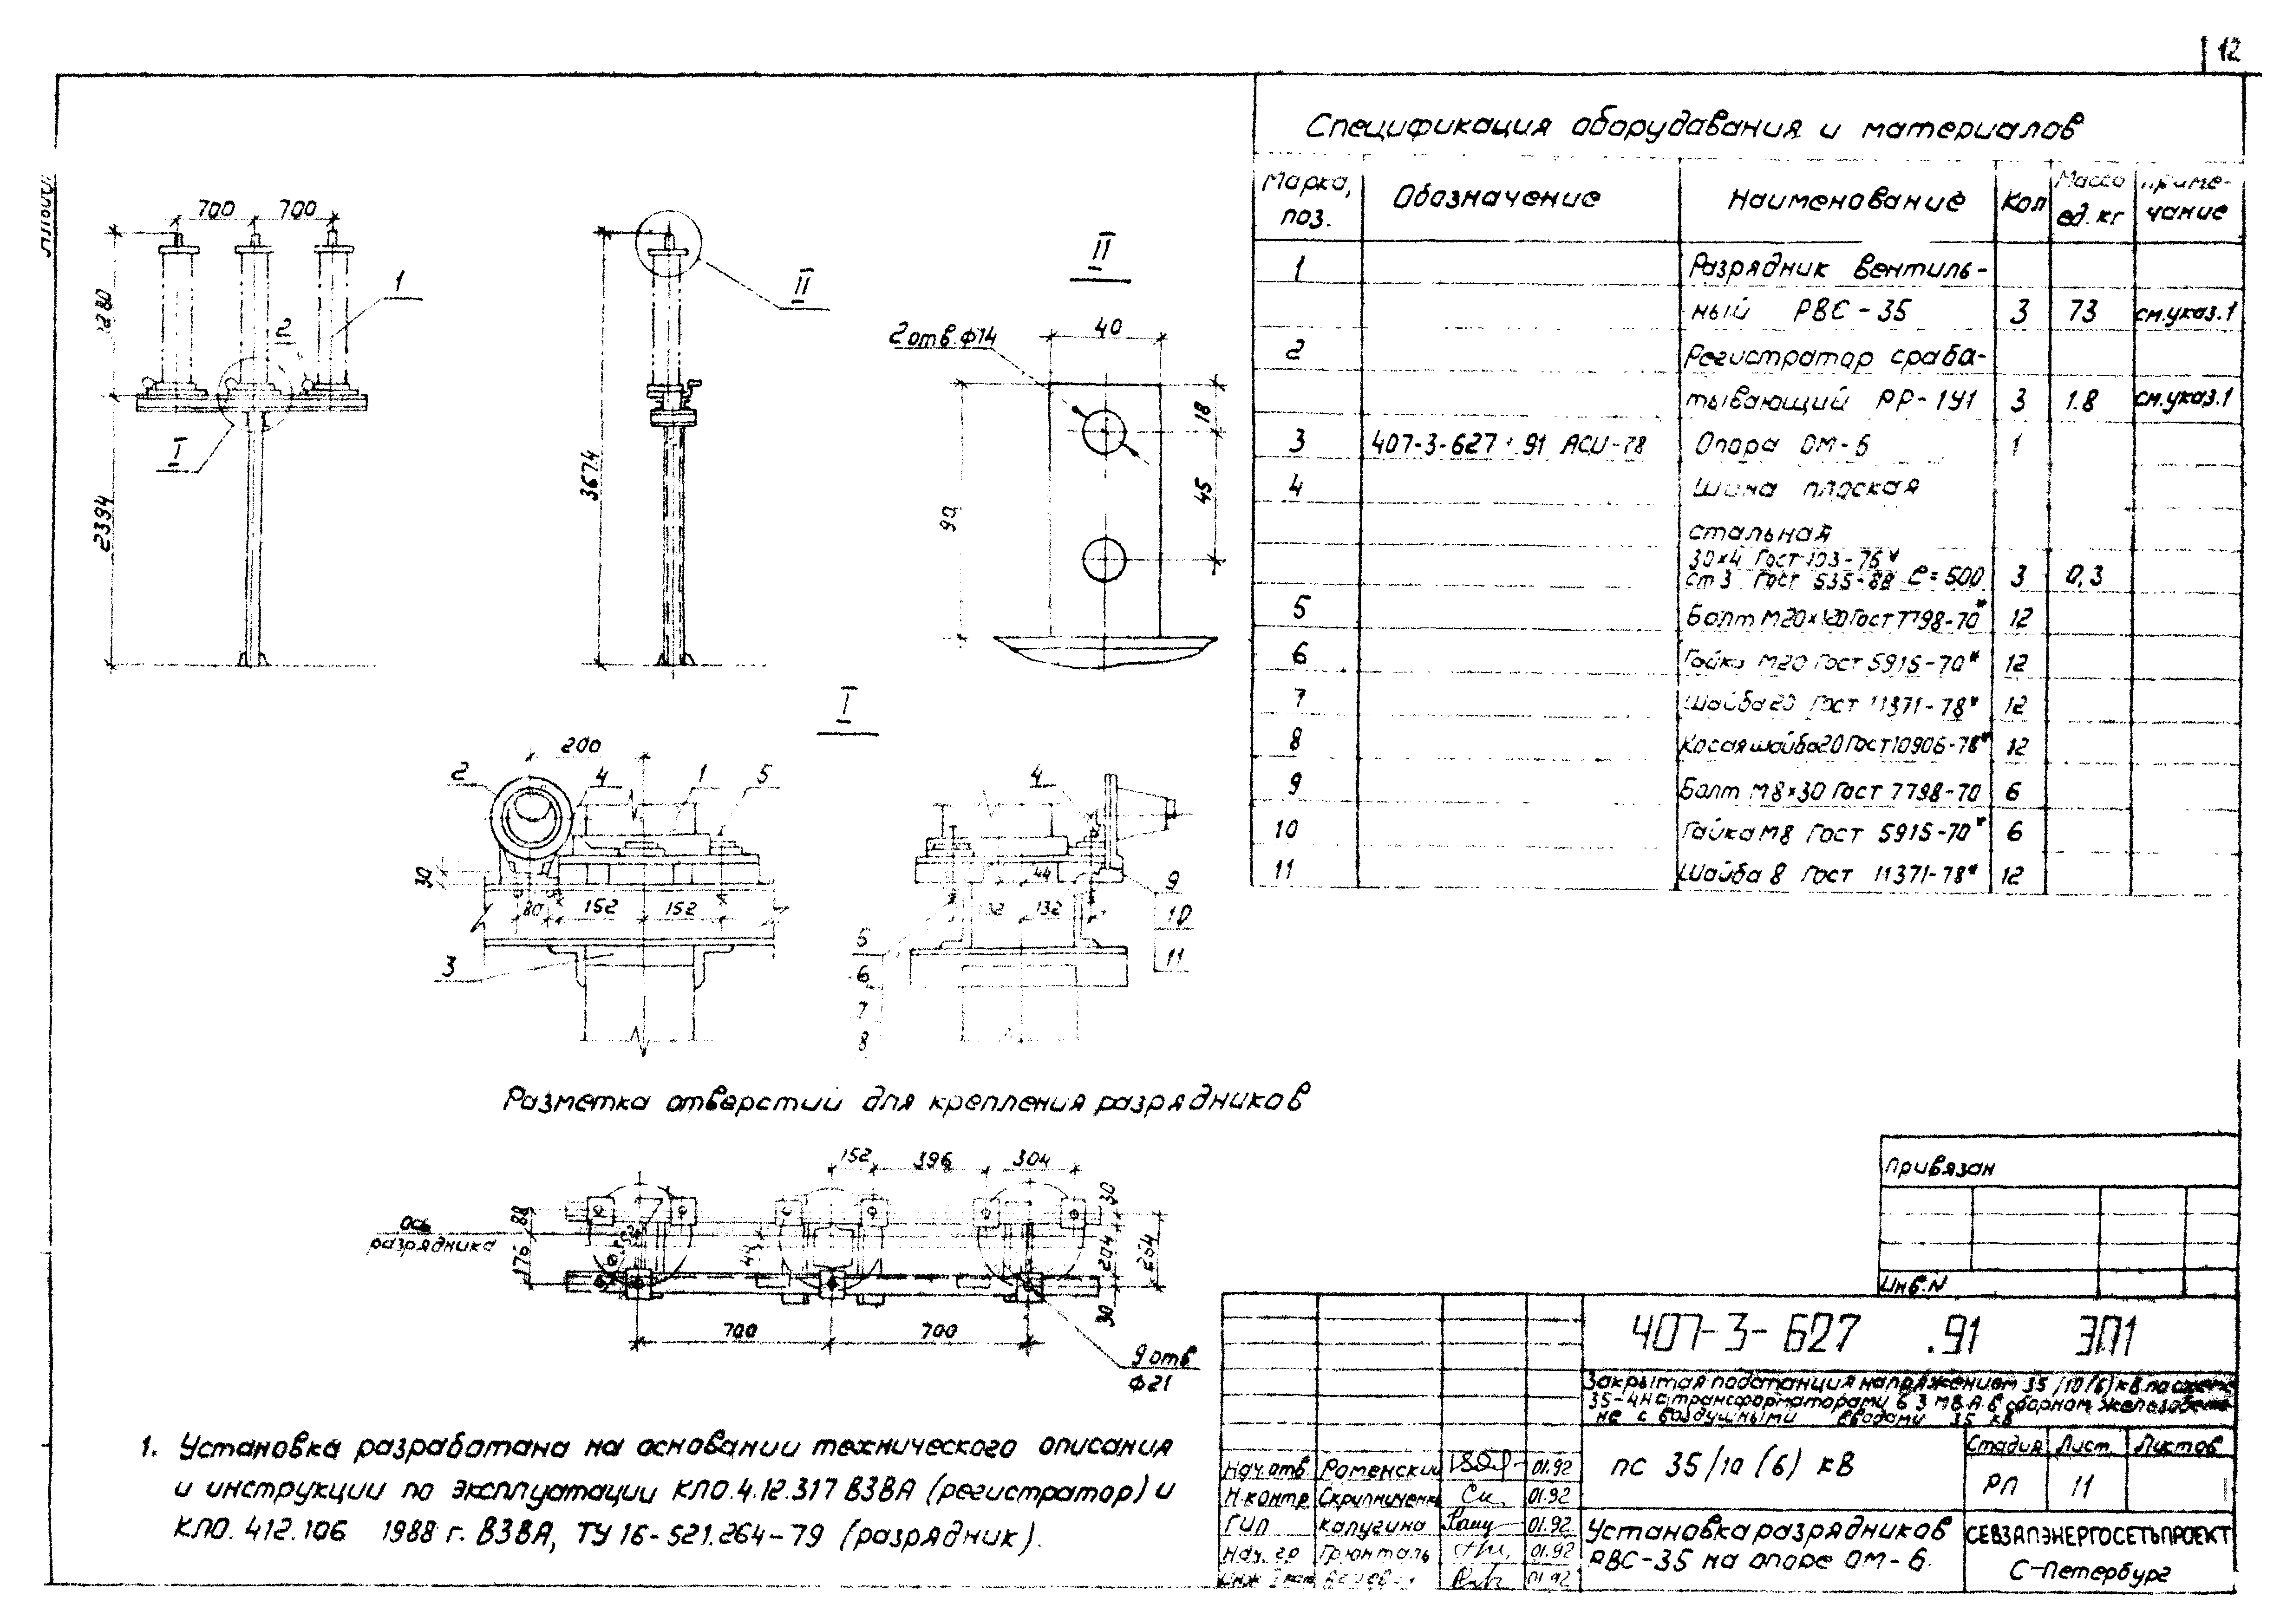 12
Спецификация оборудавания и материалов
Марка, поз. Обозначение Наименование Кол Масса ед. кг Приме-чание
1 Разрядник вентиль-
ный РВС-35 3 73 см.указ.1
2 Регистратор сраба-
тывающий РР-1У1 3 1.8 см.указ.1
3 407-3-627 .91 АСИ-78 Опора ОМ-6 1
4 Шина плоская
стальная
30×4 Гост 103-76*
Ст3 Гост 535-88 ℓ=500 3 0,3
5 Болт М20× Гост 7798-70* 12
6 Гайка М20 Гост 5915-70* 12
7 Шайба 20 Гост 11371-78* 12
8 Косая шайба 20 Гост 10906-78* 12
9 Болт М8×30 Гост 7798-70 6
10 Гайка М8 Гост 5915-70* 6
11 Шайба 8 Гост 11371-78* 12
700 700
1280
2394
1
2
I
3674
II
II
2 отв. ф14
40
18
45
90
I
200
2 4 1 5
30
80 152 152
3
4
44
132 132
9
10
11
5
6
7
8
Разметка отверстий для крепления разрядников
152 396 304
ось
разрядника
88
176
44
30
204
264
30
700 700
9 отв
ф21
1. Установка разработана на основании технического описания
и инструкции по эксплуатации КЛО.4.12.317 ВЗВА (регистратор) и
КЛО. 412.106 1988 г. ВЗВА, ТУ 16-521.264-79 (разрядник).
Привязан
Инв.N
407-3-627 .91 ЭП1
Закрытая подстанция напряжением 35/10(6) кВ по схеме
35-4Н с трансформаторами 6 3 МВ.А в сборном железобето-
не с воздушными вводами 35 кВ
Нач.отв. Роменский 01.92
Н.контр Скрипниченко 01.92
ГИП Калугина 01.92
Нач. гр Грюнталь 01.92
01.92
ПС 35/10 (6) кВ
Стадия Лист Листов
РП 11
Установка разрядников
РВС-35 на опоре ОМ-6.
СЕВЗАПЭНЕРГОСЕТЬПРОЕКТ
С-Петербург